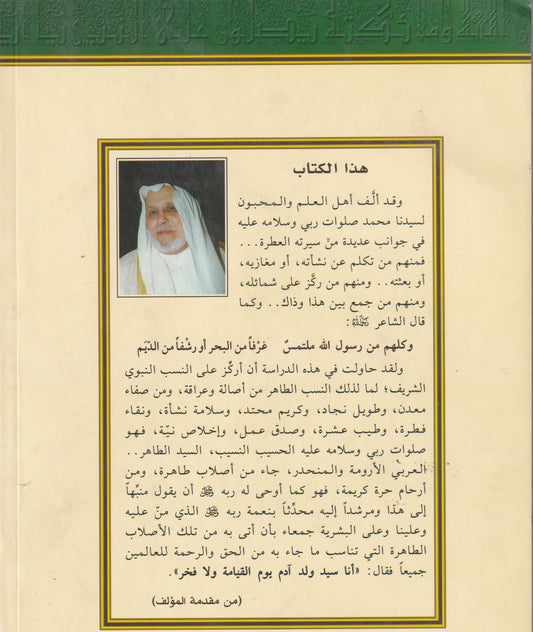 إن الله وملائكته يصلون على النبي يا أيها
هذا الكتاب
وقد ألَّف أهل العلم والمحبون
لسيدنا محمد صلوات ربي وسلامه عليه
في جوانب عديدة من سيرته العطرة...
فمنهم من تكلم عن نشأته، أو مغازيه،
أو بعثته.. ومنهم من ركَّز على شمائله،
ومنهم من جمع بين هذا وذاك.. وكما
قال الشاعر رحمه الله:
وكلهم من رسول الله ملتمسٌ غرْفاً من البحر أو رشْفاً من الدِّيَم
ولقد حاولت في هذه الدراسة أن أركِّز على النسب النبوي
الشريف؛ لما لذلك النسب الطاهر من أصالة وعراقة، ومن صفاء
معدن، وطويل نجاد، وكريم محتد، وسلامة نشأة، ونقاء
فطرة، وطيب عشرة، وصدق عمل، وإخلاص نيّة، فهو
صلوات ربي وسلامه عليه الحسيب النسيب، السيد الطاهر..
العربي الأرومة والمنحدر، جاء من أصلاب طاهرة، ومن
أرحام حرة كريمة، فهو كما أوحى له ربه ﷺ أن يقول منبِّهاً
إلى هذا ومرشداً إليه محدِّثاً بنعمة ربه ﷺ الذي منّ عليه
وعلينا وعلى البشرية جمعاء بأن أتى به من تلك الأصلاب
الطاهرة التي تناسب ما جاء به من الحق والرحمة للعالمين
جميعاً فقال: «أنا سيد ولد آدم يوم القيامة ولا فخر».
(من مقدمة المؤلف)